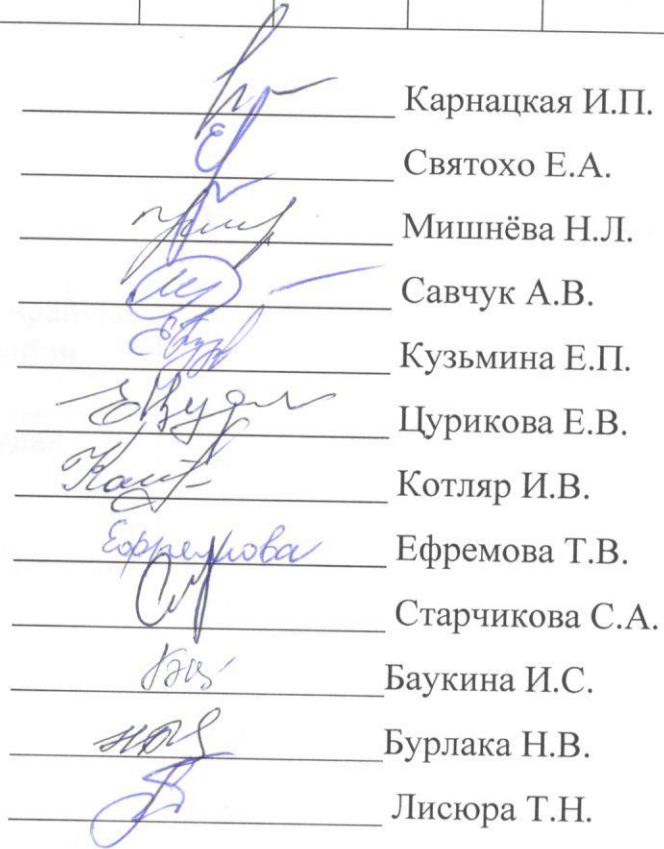 Карнацкая И.П.
Святохо Е.А.
Мишнёва Н.Л.
Савчук А.В.
Кузьмина Е.П.
Цурикова Е.В.
Котляр И.В.
Ефремова Ефремова Т.В.
Старчикова С.А.
Баукина И.С.
Бурлака Н.В.
Лисюра Т.Н.